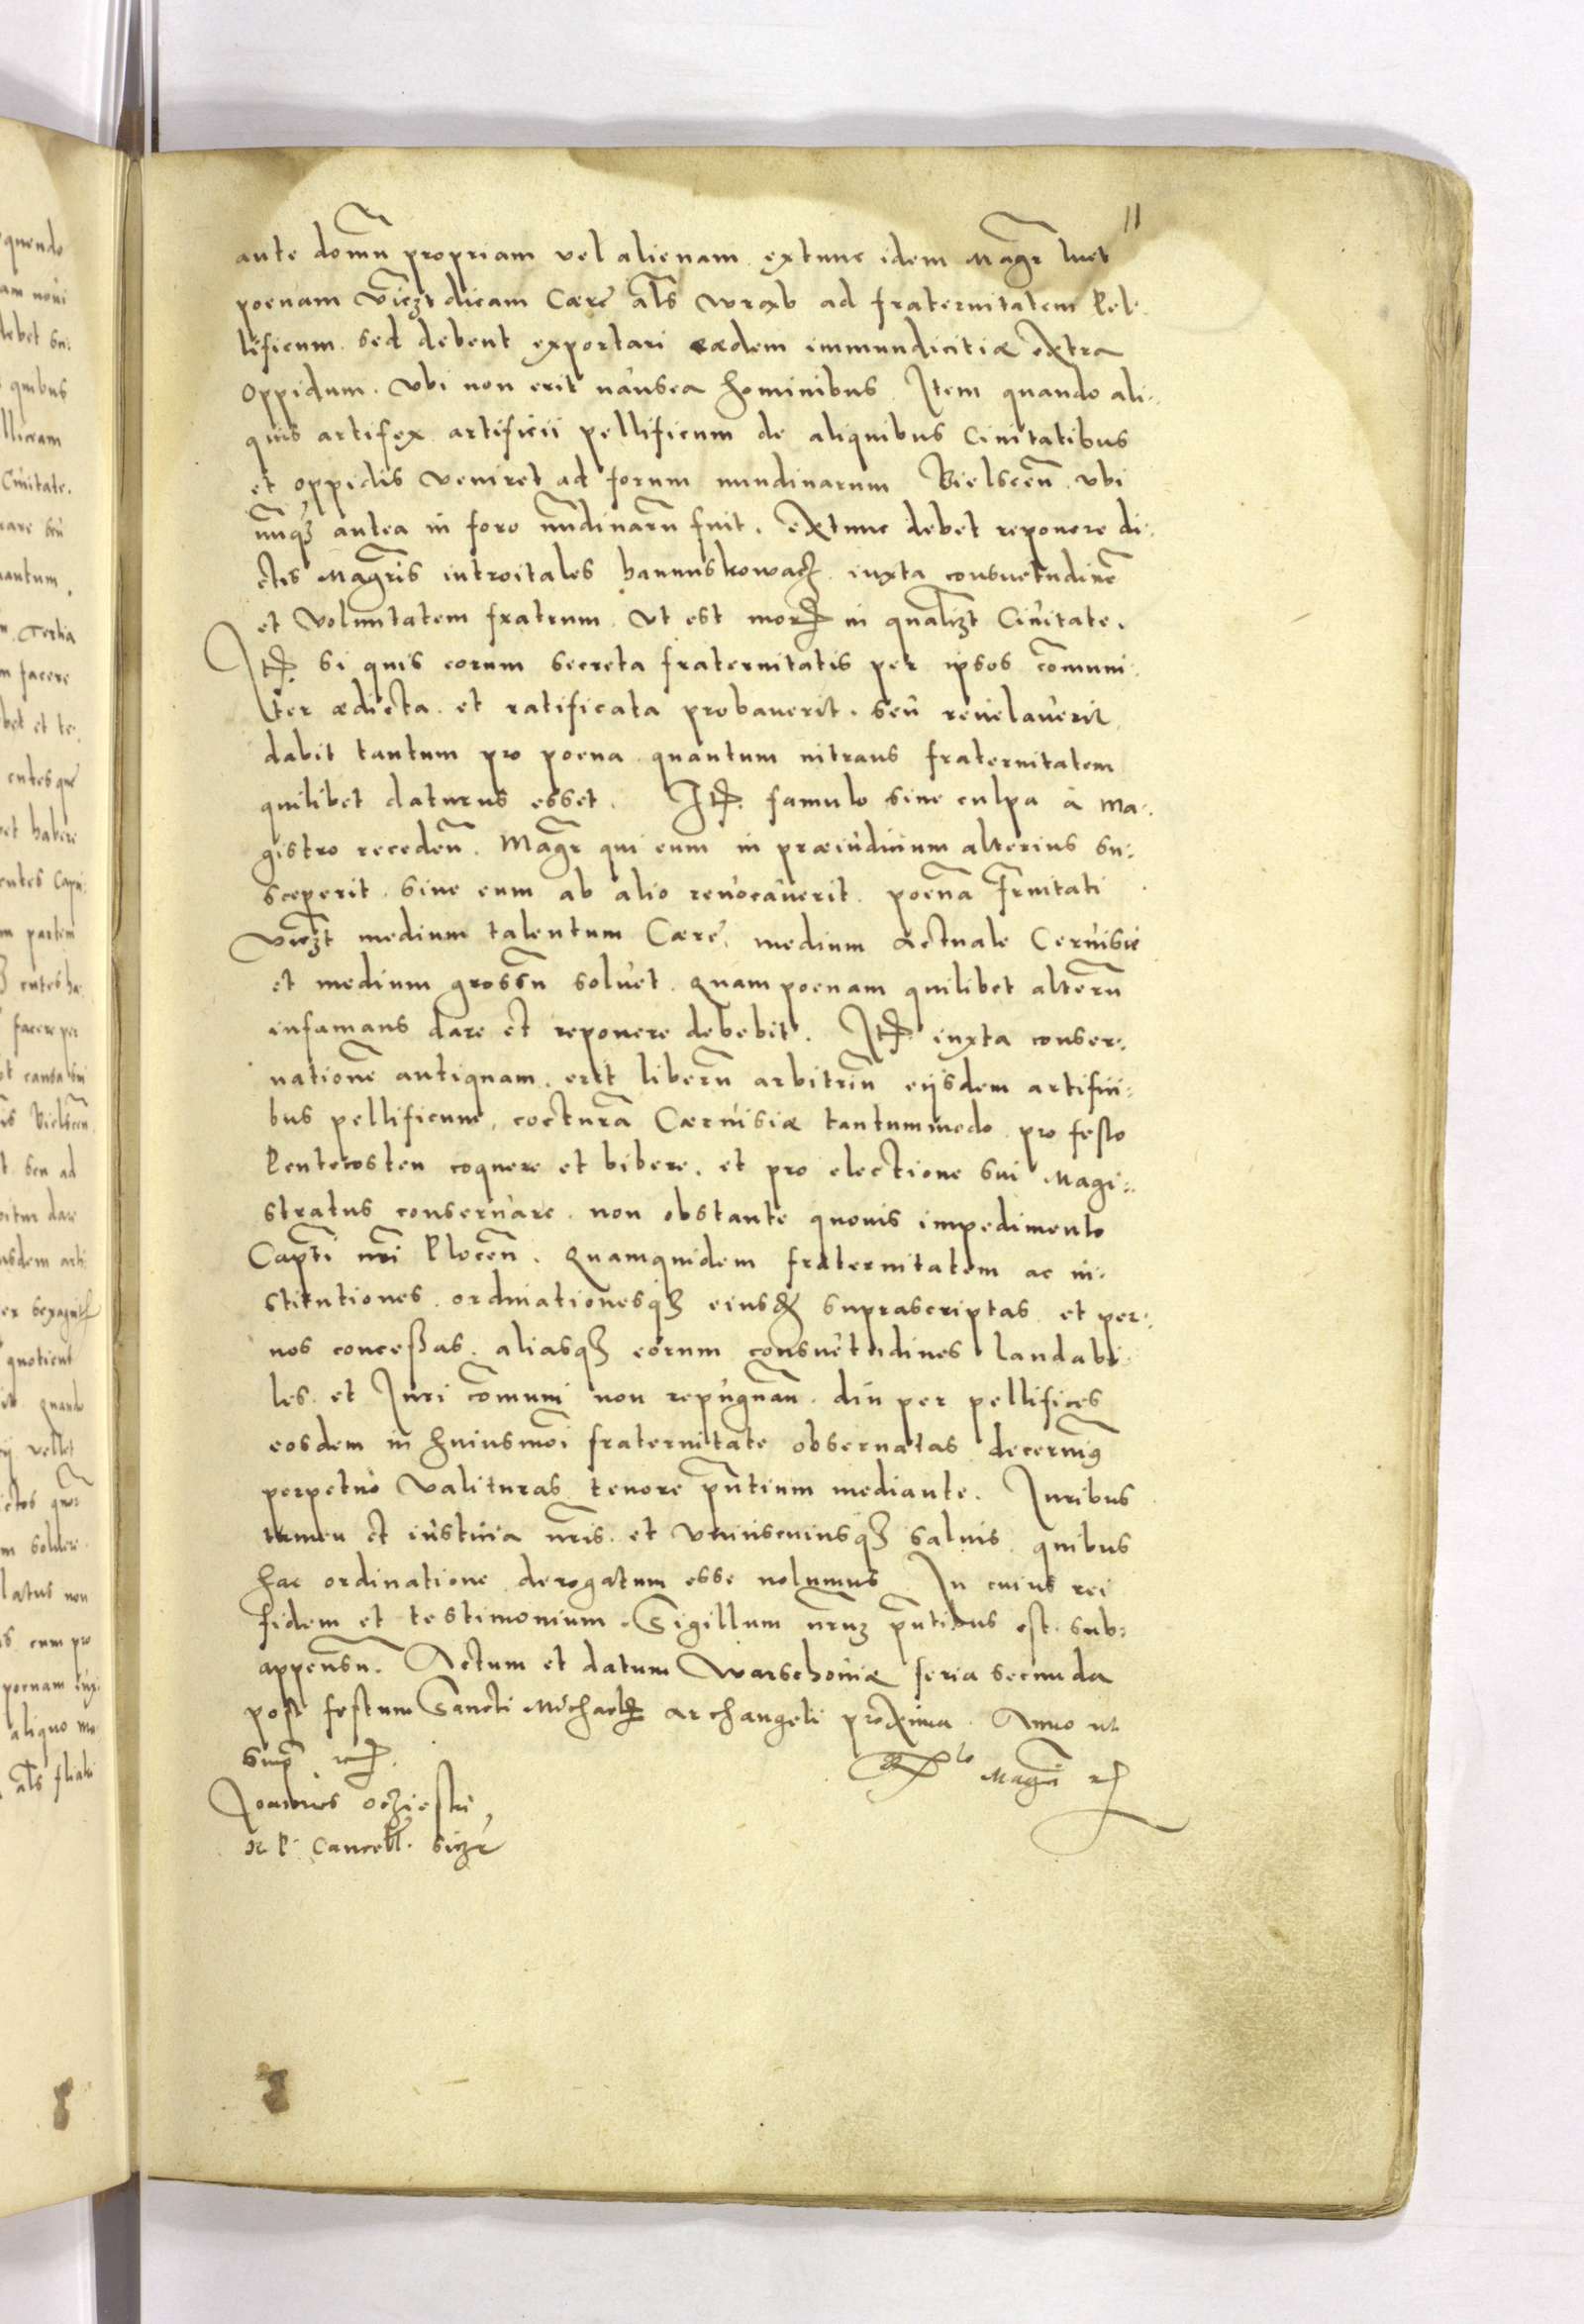 11
ante domū propriam vel alienam extunc idem Magr̄ luet
poenam vīczt dicam Cærē al̄s wrąb ad fraternitatem Pel-
lificum sed debent exportari eædem immundicitiæ extra
oppidum. vbi non erit nausea hominibus Item quando ali-
quis artifex artificii pellificum de aliquibus Ciuitatibus
et oppidis veniret ad forum nundinarum Bielscen̄ vbi
nūqȝ antea in foro nūdinarū fuit. extunc debet reponere di-
ctis Magr̄is introitales iuxta consuetudinē
et voluntatem fratrum vt est moris in qualizt Ciuitate.
Itē si quis eorum secreta fraternitatis per ipsos cōmuni-
ter ædicta et ratificata probauerit. seu reuelauerit
dabit tantum pro poena quantum intrans fraternitatem
quilibet daturus esset. Itē famulo sine culpa à Ma-
gistro receden̄. Magr̄ qui eum in præiudicium alterius su-
sceperit siue eum ab alio reuocauerit. poenā fr̄nitati
viczt medium talentum Cæræ, medium actuale Ceruisie
et medium grossū soluet. quam poenam quilibet alterū
infamans dare et reponere debebit. Itē iuxta conser-
uationē antiquam. erit liberū arbitriū eijsdem artifici-
bus pellificum, cocturā Cæruisiæ tantummodo pro festo
Pentecosten coquere et bibere. et pro electione sui Magi-
stratus conseruare. non obstante quouis impedimento
Captī nr̄i Plocen̄. Quamquidem fraternitatem ac in-
stitutiones ordinationesqȝ eiusdē suprascriptas et per
nos conceßas aliasqȝ eorum consuetudines laudabi-
les et Juri cōmuni non repugnan̄. diu per pellifices
eosdem in huiusmōi fraternitate obseruatas decernimꝰ
perpetuo valituras tenore pn̄tium mediante. Juribus
tamen et iusticia nr̄is et vniuscuiusqȝ saluis quibus
hac ordinatione derogatum esse nolumus In cuius rei
fidem et testimonium Sigillum nr̄uȝ pn̄tibus est sub-
appensū. Actum et datum Warschouiæ feria secunda
post festum Sancti Michaelis archangeli proxima Anno ut
sup̄
Magr̄i
Joannes oczieski
R P Cancell.